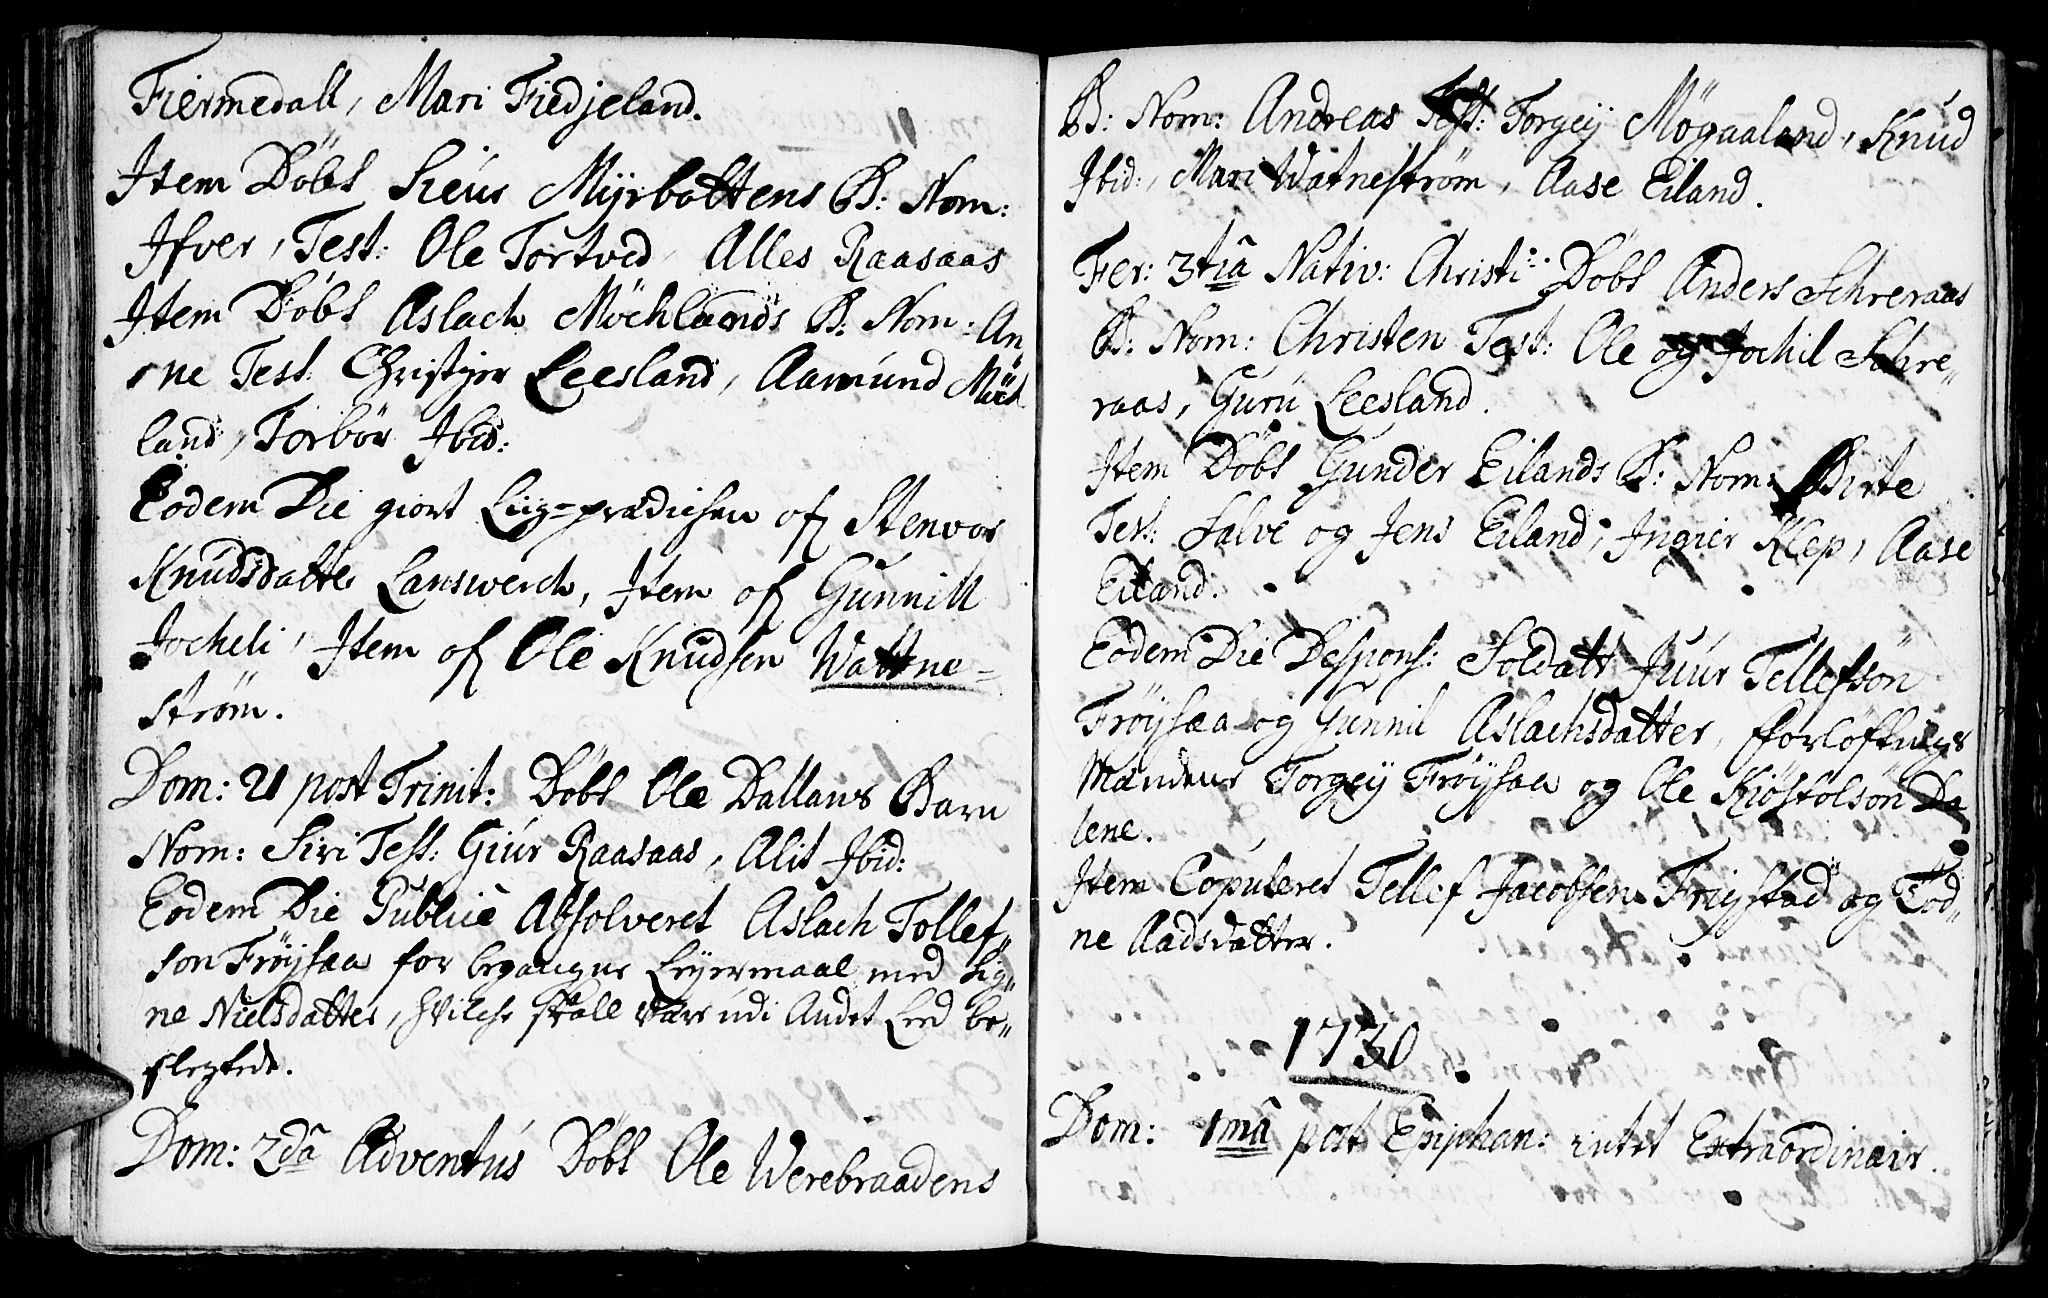 Fiermedall, Mari Fiedjeland.
Item Döbt Siúr Myrbattens B: Nom:
Ifver, Test: Ole Tortved, Alles Raasaas
Item Döbt Aslach Möchlands B: Nom: An
ne Test: Christjer Leesland, Aamúnd Möch
land, Torbör Ibid:
Eodem Die giort Liig=prædichen of Stenvor
Knúdsdatter Lanswerch, Item of Gúnnill
Jocheli, Item of Ole Knudsen Wattne=
strøm.
Dom: 21 post Trinit: Döbt Ole Dallans Barn
Nom: Siri Test: Giúr Raasaas, Alit Ibid:
Eodem Die Publicè Absolveret Aslach Tollef„
son Frøysaa for begangne Leyermaal med Sig„
ne Nielsdatter, hvilche skall være údi Andet Leed be„
slegtede.
Dom: 2dâ Adventús Döbt Ole Werebraadens
B: Nom: Andreas Test: Torgey Mögaaland, Knúd
Ibid:, Mari Watneström, Aase Eiland.
Fer: 3tiâ Nativ: Christi Döbt Anders Schreraas
B: Nom: Christen Test: Ole og Jochil Schre„
raas, Gúrú Leesland.
Item Döbt Gúnder Eilands B: Nom: Birte
Test: Salve og Jens Eiland, Ingier Klep, Aase
Eiland.
Eodem Die Despons: Soldatt Júúr Tellefsön
Frøysaa og Gunnil Aslachsdatter, fforlöftnigs
Mændene Torgey Frøysaa og Ole Kiöstolsön Da
lene.
Item Copuleret Tellef Jacobsen Frøystad og Tod„
ne Aadsdatter.
1730
Dom: 1mâ post Epiphan: intet Extraordinair.